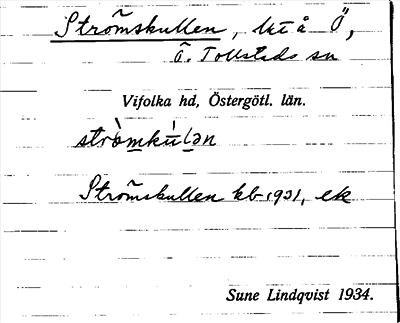 Strömskullen, lht å Ö,
Ö. Tollstads sn
Vifolka hd, Östergötl. län.
stròmkúlən
Strömskullen kb 1931, ek
Sune Lindqvist 1934.